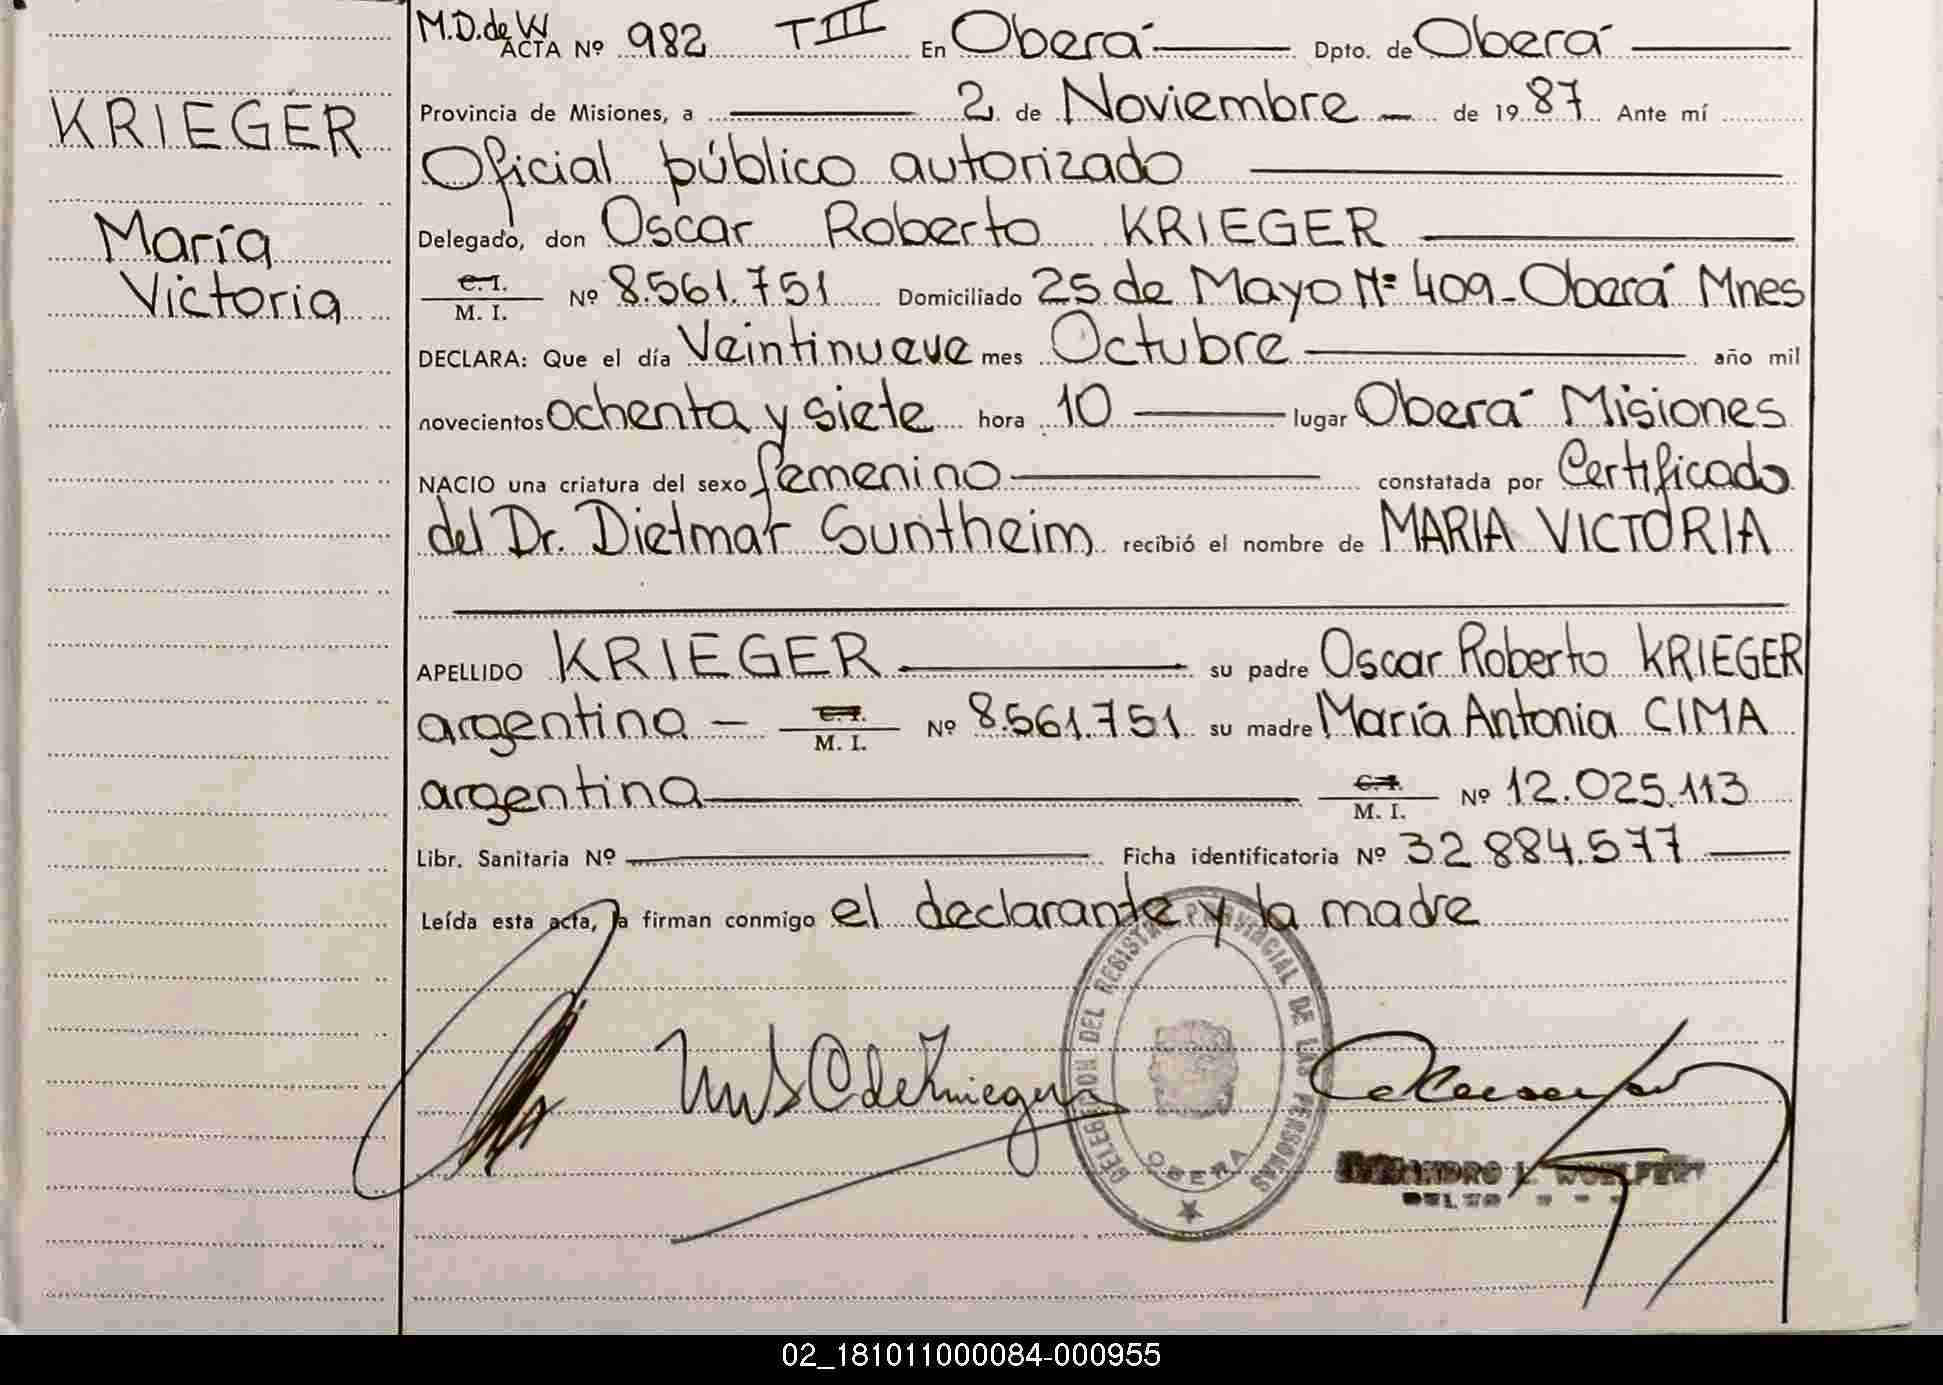 M.D.de W
ACTA Nº 982 TIII En Oberá Dpto. de Oberá
KRIEGER
Provincia de Misiones, a 2 de Noviembre de 1987 Ante mí
Oficial público autorizado
María
Victoria
Delegado, don Oscar Roberto KRIEGER
C.I.
M. I. Nº 8.561.751 Domiciliado 25 de Mayo Nº 409-Oberá Mnes
DECLARA: Que el día Veintinueve mes Octubre año mil
novecientos ochenta y siete hora 10 lugar Oberá Misiones
NACIO una criatura del sexo femenino constatada por Certificado
del Dr. Dietmar Suntheim recibió el nombre de MARIA VICTORIA
APELLIDO KRIEGER su padre Oscar Roberto KRIEGER
argentino C.I. M. I. Nº 8.561.751 su madre María Antonia CIMA
argentina C.I. M. I. Nº 12.025.113
Libr. Sanitaria Nº Ficha identificatoria Nº 32.884.577
Leída esta acta, la firman conmigo el declarante y la madre
C de Krieger
DELEGACION DEL REGISTRO PROVINCIAL DE LAS PERSONAS
OBERA
L. WOELFERT
02_181011000084-000955